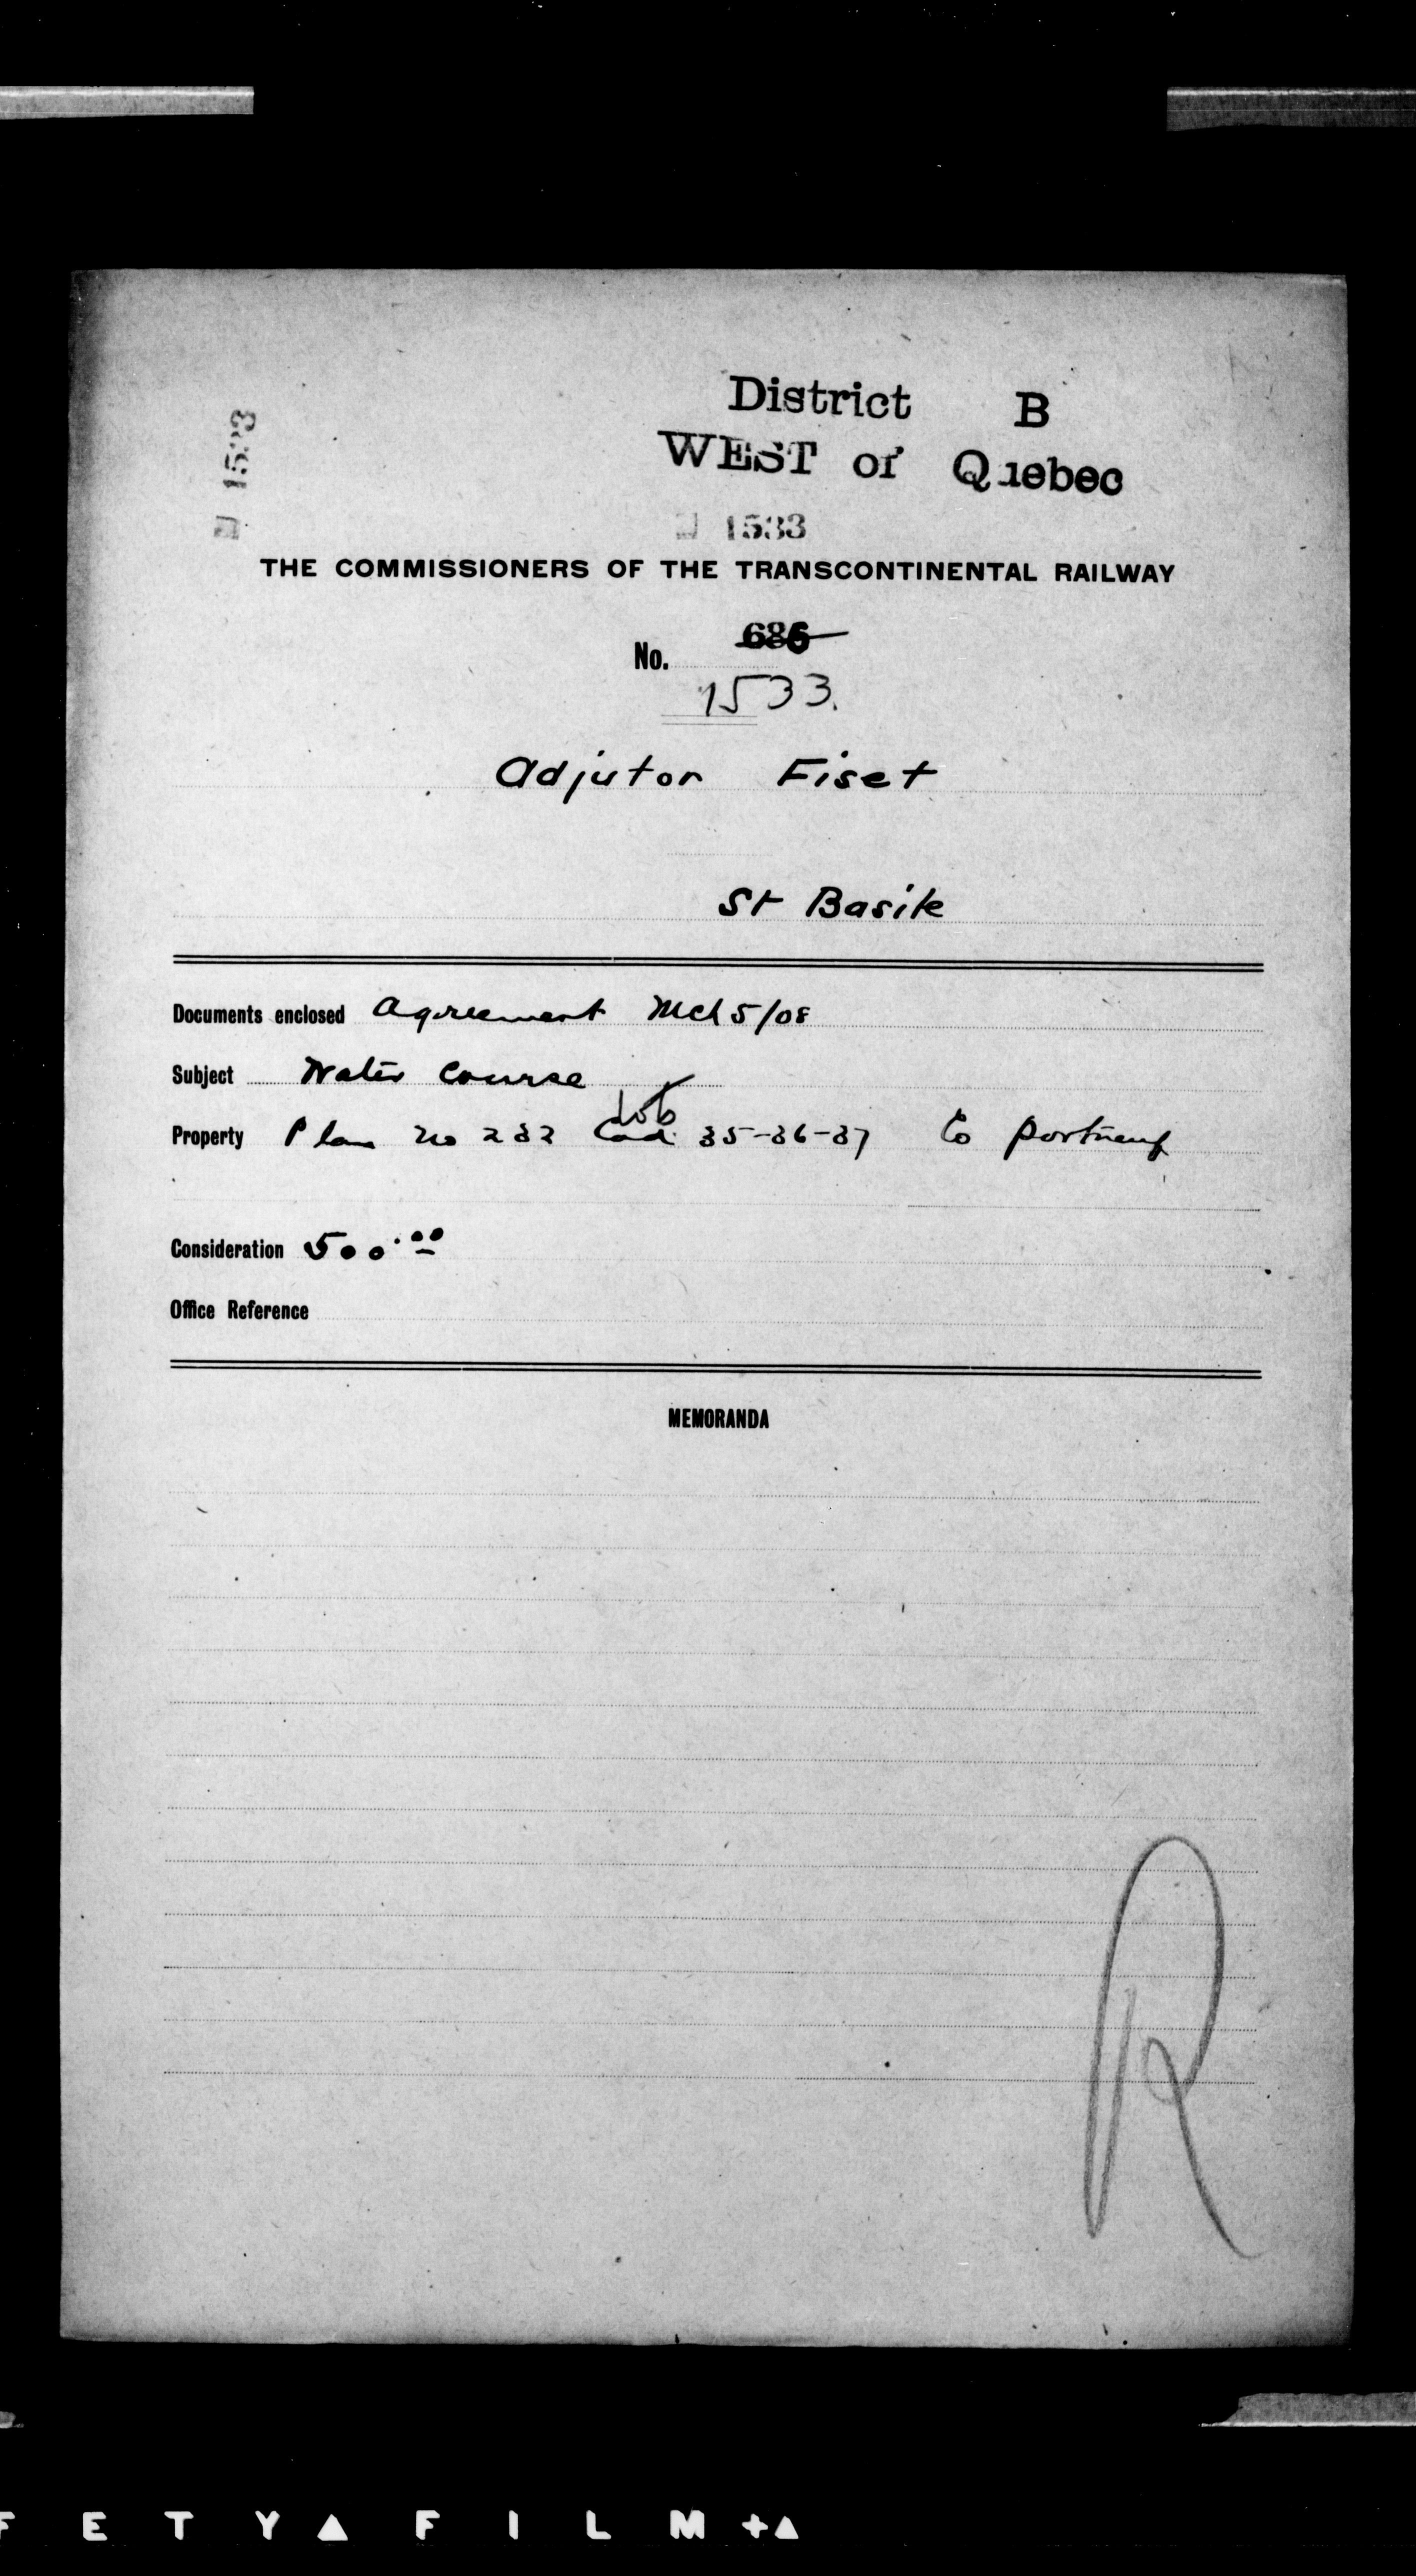 District B
WEST of Quebec
1533
1533
THE COMMISSIONERS OF THE TRANSCONTINENTAL RAILWAY
No. 686
1533.
Adjutor Fiset
St Basile
Documents enclosed Agreement Mch 5/08
Subject Water Course
lot
Property Plan no 232 Cad. 35-36-37 Co Portneuf
Consideration 500.00
Office Reference
MEMORANDA
R
FETY FILM